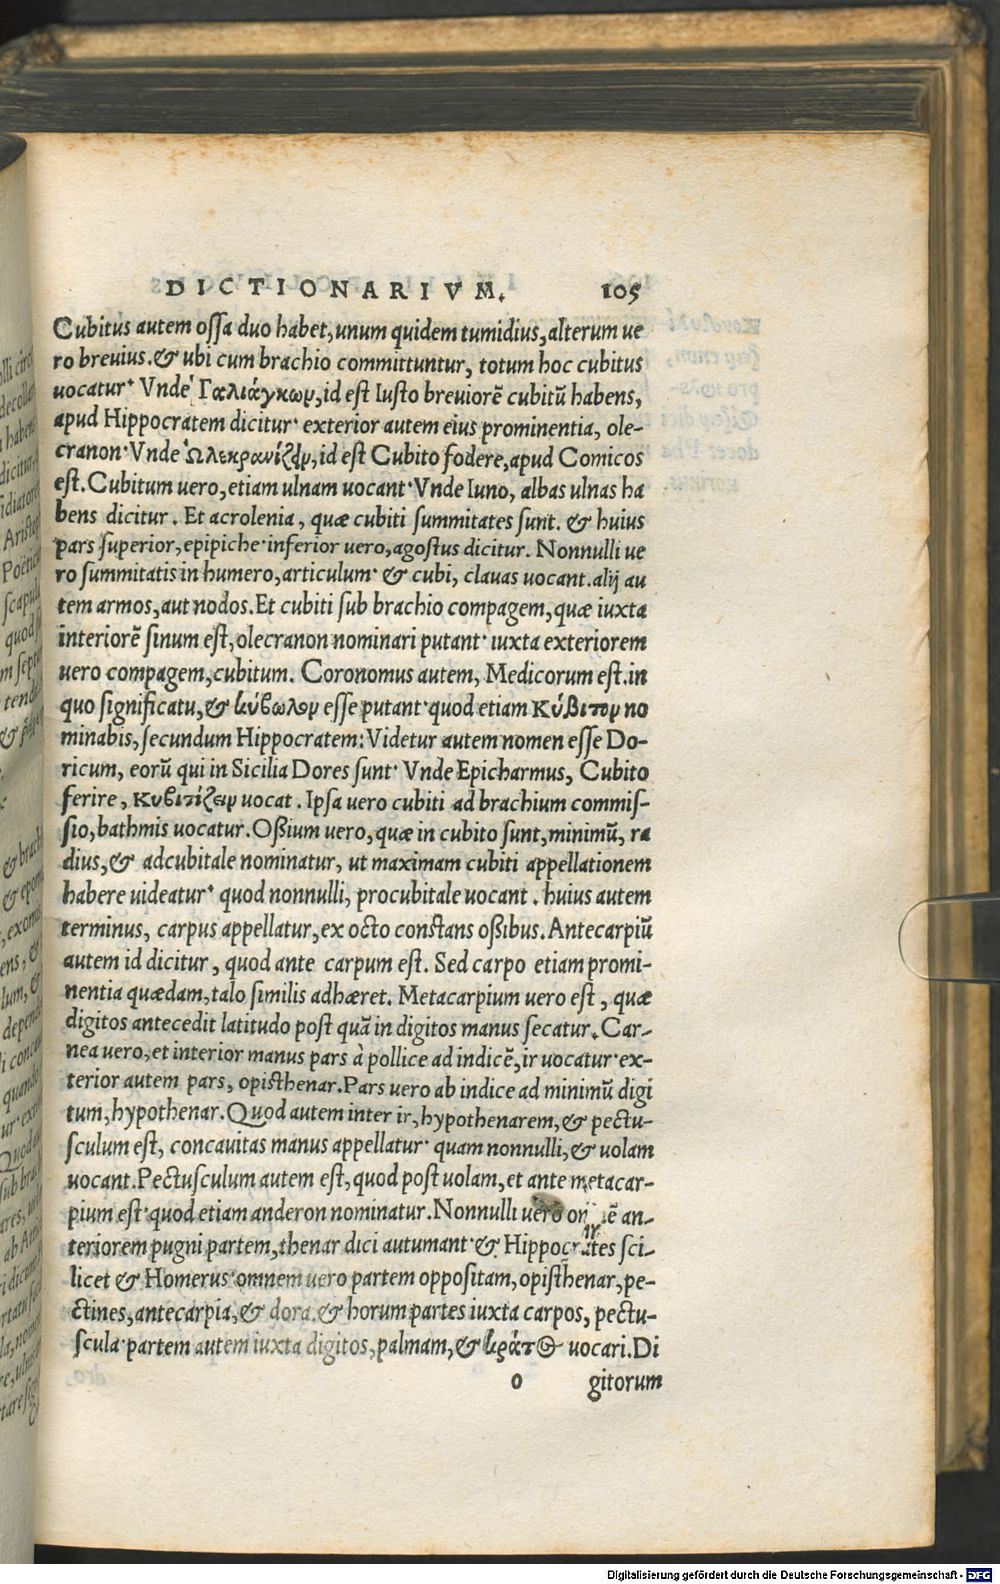 DICTIONARIVM. 105
Cubitus autem ossa duo habet, unum quidem tumidius, alterum ue
ro breuius. & ubi cum brachio committuntur, totum hoc cubitus
uocatur· Vnde Γαλιάγκων, id est Iusto breuiorē cubitū habens,
apud Hippocratem dicitur· exterior autem eius prominentia, ole-
cranon· Vnde Ὠλεκρανίζειν, id est Cubito fodere, apud Comicos
est. Cubitum uero, etiam ulnam uocant· Vnde Iuno, albas ulnas ha
bens dicitur. Et acrolenia, quæ cubiti summitates sunt. & huius
pars superior, epipiche· inferior uero, agostus dicitur. Nonnulli ue
ro summitatis in humero, articulum· & cubi, clauas uocant. alij au
tem armos, aut nodos. Et cubiti sub brachio compagem, quæ iuxta
interiorē sinum est, olecranon nominari putant· iuxta exteriorem
uero compagem, cubitum. Coronomus autem, Medicorum est. in
quo significatu, & κύβωλον esse putant· quod etiam Κύβιτον no
minabis, secundum Hippocratem: Videtur autem nomen esse Do-
ricum, eorū qui in Sicilia Dores sunt· Vnde Epicharmus, Cubito
ferire, Κυβιτίζειν uocat. Ipsa uero cubiti ad brachium commis-
sio, bathmis uocatur. Oßium uero, quæ in cubito sunt, minimū, ra
dius, & adcubitale nominatur, ut maximam cubiti appellationem
habere uideatur· quod nonnulli, procubitale uocant. huius autem
terminus, carpus appellatur, ex octo constans oßibus. Antecarpiū
autem id dicitur, quod ante carpum est. Sed carpo etiam promi-
nentia quædam, talo similis adhæret. Metacarpium uero est, quæ
digitos antecedit latitudo post quā in digitos manus secatur. Car-
nea uero, et interior manus pars à pollice ad indicē, ir uocatur· ex-
terior autem pars, opisthenar. Pars uero ab indice ad minimū digi
tum, hypothenar. Quod autem inter ir, hypothenarem, & pectu-
sculum est, concauitas manus appellatur· quam nonnulli, & uolam
uocant. Pectusculum autem est, quod post uolam, et ante metacar-
pium est· quod etiam anderon nominatur. Nonnulli uero an-
teriorem pugni partem, thenar dici autumant· & Hippocrates sci-
licet & Homerus· omnem uero partem oppositam, opisthenar, pe-
ctines, antecarpia, & dora. & horum partes iuxta carpos, pectu-
scula· partem autem iuxta digitos, palmam, & κράτος uocari. Di
o gitorum
Digitalisierung gefördert durch die Deutsche Forschungsgemeinschaft - DFG